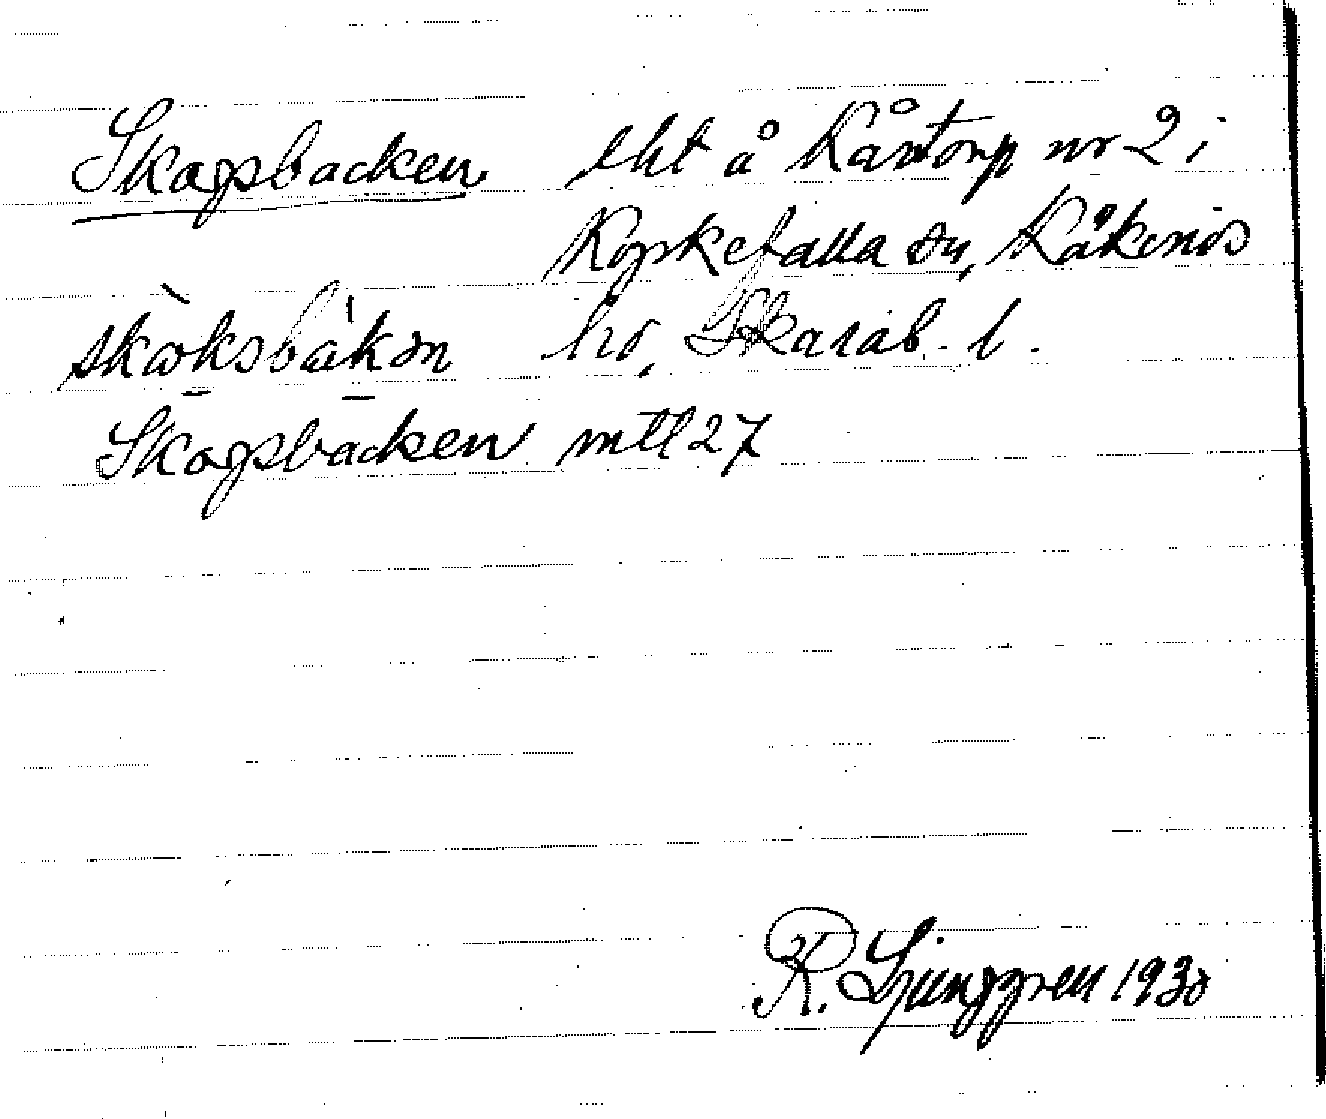 Skogsbacken lht å Kåntorp nr 2 i
Kyrkefalla sn, Kåkinds
skòksbákən hd, Skarab. l.
Skogsbacken mtl 27
R. Ljunggren 1930